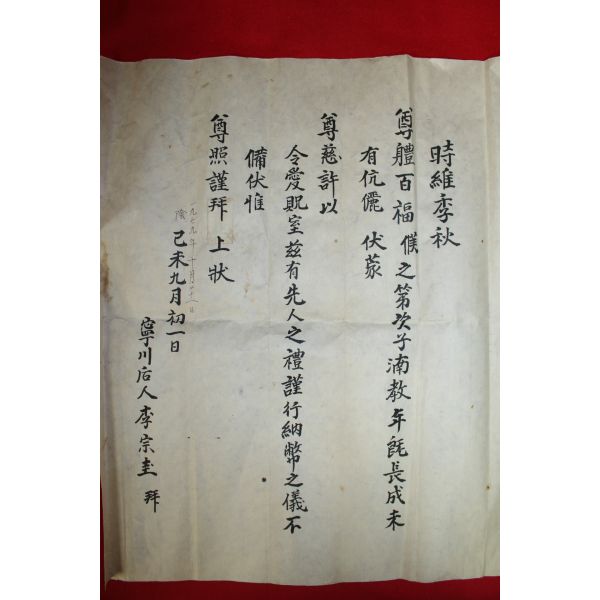 時維季秋
尊體百福 僕之第次子湳敎年旣長成未
有伉儷 伏蒙
尊慈許以
令愛貺室玆有先人之禮謹行納幣之儀不
備伏惟
尊照謹拜 上狀
一九七九年十月廿一日
陰 己未九月初一日
寧川后人李宗圭 拜